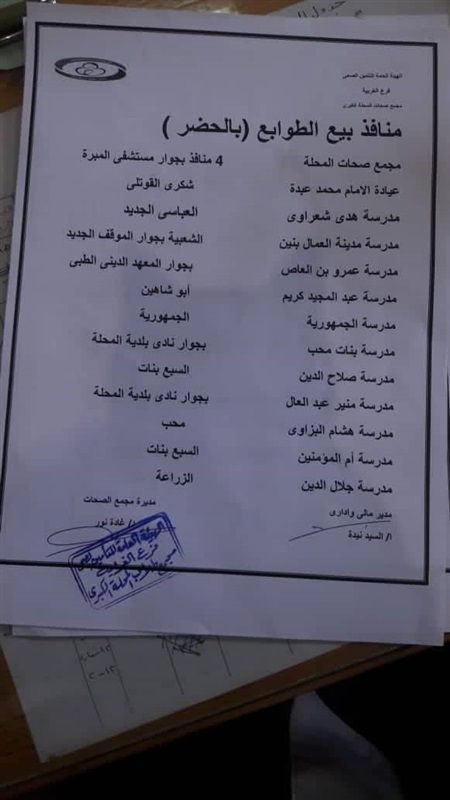 الهيئة العامة للتأمين الصحى
فرع الغربية
مجمع صحات المحلة الكبرى
منافذ بيع الطوابع (بالحضر )
مجمع صحات المحلة 4 منافذ بجوار مستشفى المبرة
عيادة الامام محمد عبدة شكرى القوتلى
مدرسة هدى شعراوى العباسى الجديد
مدرسة مدينة العمال بنين الشعبية بجوار الموقف الجديد
مدرسة عمرو بن العاص بجوار المعهد الدينى الطبى
مدرسة عبد المجيد كريم أبو شاهين
مدرسة الجمهورية الجمهورية
مدرسة بنات محب بجوار نادى بلدية المحلة
مدرسة صلاح الدين السبع بنات
مدرسة منير عبد العال بجوار نادى بلدية المحلة
مدرسة هشام البزاوى محب
مدرسة أم المؤمنين السبع بنات
مدرسة جلال الدين الزراعة
مدير مالى وادارى مديرة مجمع الصحات
ا/ السيد نيدة د/ غادة نور
الهيئة العامة للتأمين الصحى
فرع الغربية